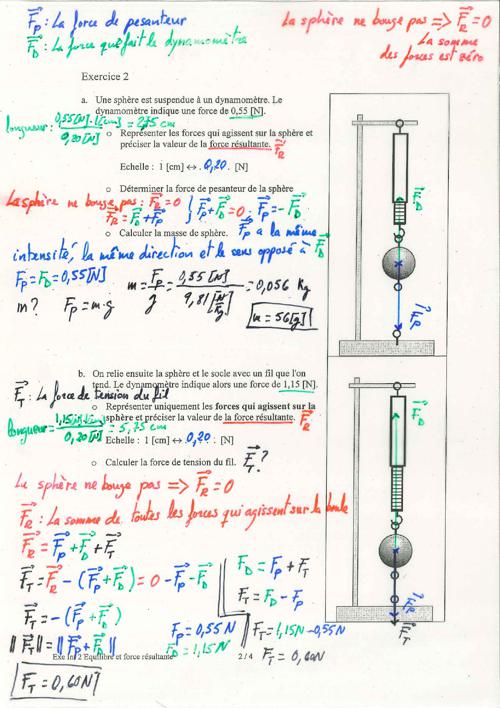 F_P : La force de pesanteur
F_D : La force que fait le dynamomètre
La sphère ne bouge pas => F_R = 0
La somme
des forces est zéro
Exercice 2
a. Une sphère est suspendue à un dynamomètre. Le
dynamomètre indique une force de 0,55 [N].
longueur: 0,55[N]·1[cm] / 0,20[N] = 2,75 cm
o Représenter les forces qui agissent sur la sphère et
préciser la valeur de la force résultante. F_R
Echelle : 1 [cm] ↔ 0,20 [N]
o Déterminer la force de pesanteur de la sphère
La sphère ne bouge pas: F_R = 0
F_R = F_D + F_P } F_P + F_D = 0 ; F_P = -F_D
o Calculer la masse de sphère. F_P a la même
intensité, la même direction et le sens opposé à F_D
F_P = F_D = 0,55[N]
m = F_P / g = 0,55 [N] / 9,81 [N/kg] = 0,056 kg
m? F_P = m·g
m = 56[g]
F_D
F_P
b. On relie ensuite la sphère et le socle avec un fil que l'on
tend. Le dynamomètre indique alors une force de 1,15 [N].
F_T : La force de tension du fil
o Représenter uniquement les forces qui agissent sur la
sphère et préciser la valeur de la force résultante. F_R
longueur = 1,15[N]·1[cm] / 0,20[N] = 5,75 cm
Echelle : 1 [cm] ↔ 0,20 [N]
o Calculer la force de tension du fil. F_T?
La sphère ne bouge pas => F_R = 0
F_R : La somme de toutes les forces qui agissent sur la boule
F_R = F_P + F_D + F_T
F_T = F_R - (F_P + F_D) = 0 - F_P - F_D
F_T = -(F_P + F_D)
||F_T|| = ||F_P + F_D||
F_P = 0,55N
F_D = 1,15N
F_D = F_P + F_T
F_T = F_D - F_P
F_T = 1,15N - 0,55N
F_T = 0,60N
F_D
F_P
F_T
Exe Ini 2 Equilibre et force résultante
2 / 4
F_T = 0,60N